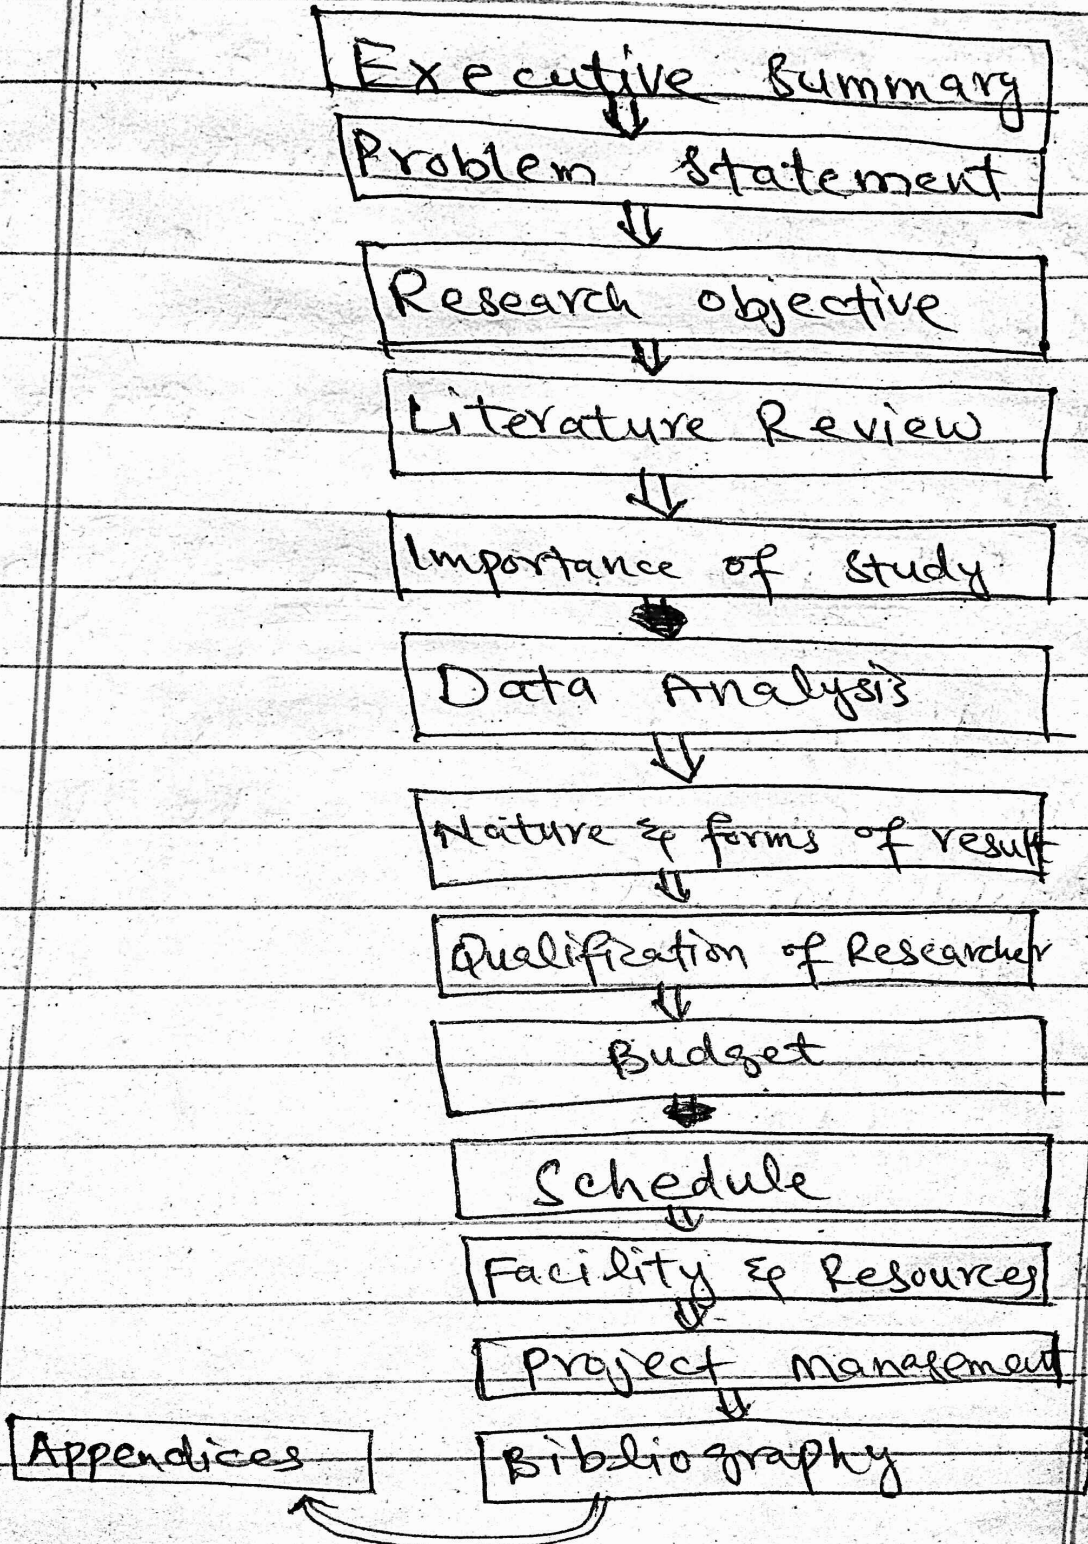 Executive Summary
Problem Statement
Research objective
Literature Review
Importance of study
Data Analysis
Nature & forms of result
Qualification of Researcher
Budget
Schedule
Facility & Resources
Project management
Bibliography
Appendices